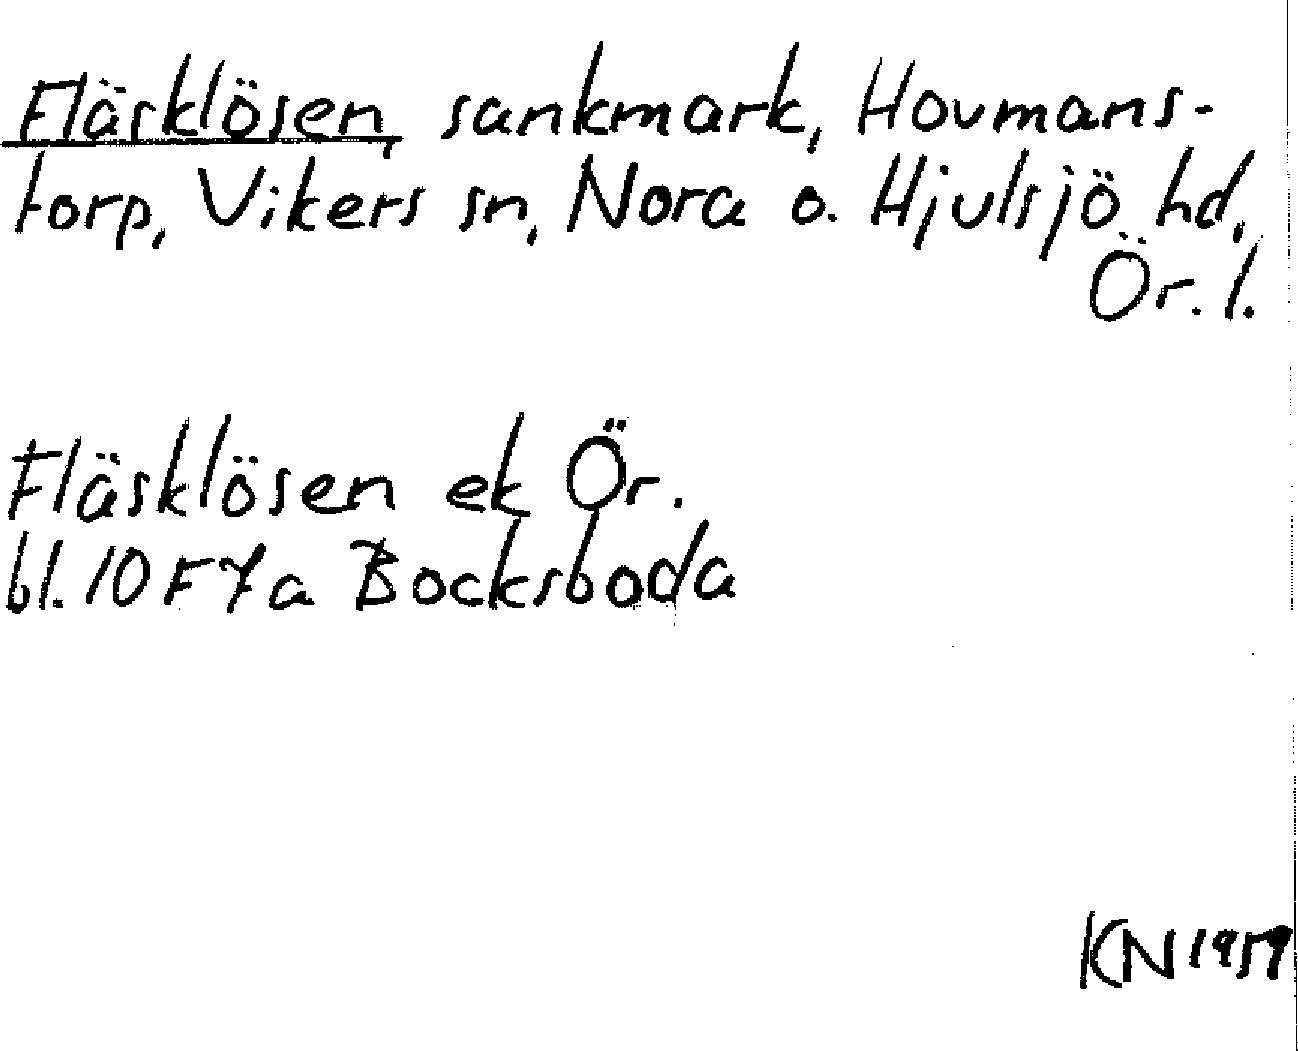 Fläsklösen, sankmark, Hovmans-
torp, Vikers sn, Nora o. Hjulsjö hd,
Ör. l.
Fläsklösen ek Ör.
bl. 10 F 7 a Bocksboda
KN 1959